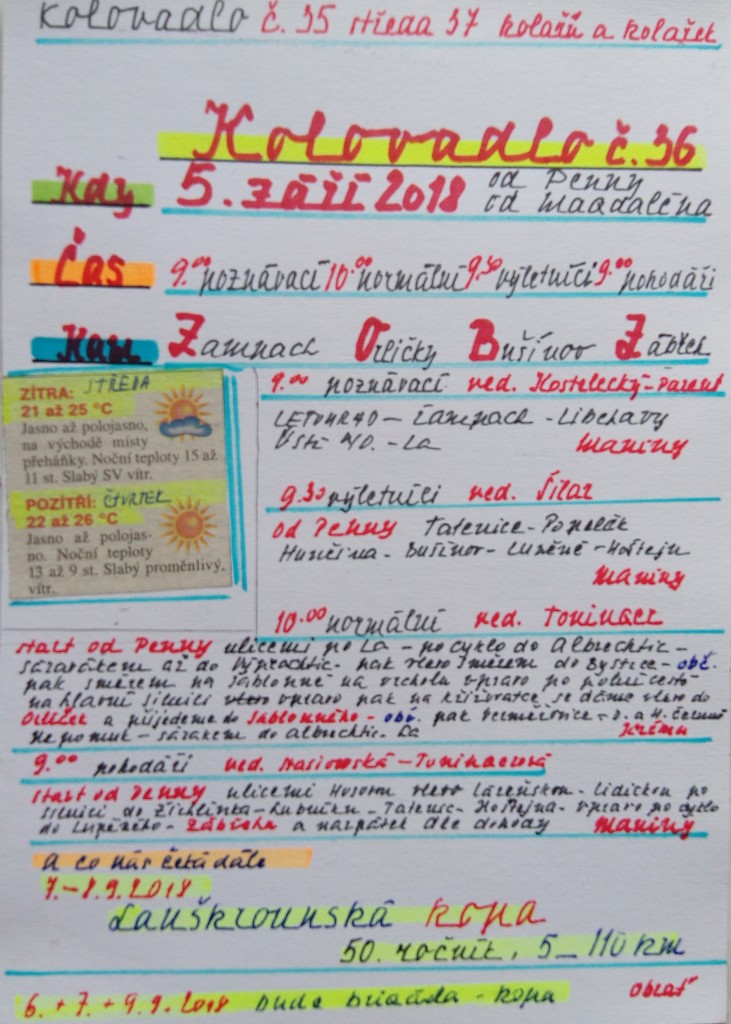 Kolovadlo č. 35 středa 37 kolařů a kolařek
Kolovadlo č. 36
Kdy 5. září 2018 od Penny
od Magdaléna
Čas 9.00 poznávací 10.00 normální 9.30 výletníci 9.00 pohodáři
Kam Žampach Orličky Bušínov Zábřeh
ZÍTRA: STŘEDA
21 až 25 °C
Jasno až polojasno,
na východě místy
přeháňky. Noční teploty 15 až
11 st. Slabý SV vítr.
POZÍTŘÍ: ČTVRTEK
22 až 26 °C
Jasno až polojas-
no. Noční teploty
13 až 9 st. Slabý proměnlivý,
vítr.
9.00 poznávací ved. Kostelecký-
LETOHRAD - Žampach - Libchavy
Ústí n/O. - La Maniny
9.30 výletníci ved. Šilar
od Penny Tatenice - Popelák
Hynčina - Bušínov - Lupěné - Hoštejn
Maniny
10.00 normální ved.
start od Penny ulicemi po La - po cyklo do Albrechtic -
až do Výprachtic - pak vlevo směrem do Bystřec - obč.
pak směrem na Jablonné na vrcholu vpravo po polní cestě
na hlavní silnici vlevo vpravo pak na křižovatce se dáme vlevo do
Orliček a přijedeme do Jablonného - obč. pak Verměřovice - D. a H. Čermná
Nepomuk - do Albrechtic - La
9.00 pohodáři ved.
start od Penny ulicemi Husovou vlevo Lázeňskou - Lidickou po
silnici do Žichlínka - Lubníku - Tatenic - Hoštejna - vpravo po cyklo
do Lupěného - Zábřeha a nazpátek dle dohody Maniny
a co nás čeká dále
7.-8.9.2018
Lanškrounská kopa
50. ročník, 5 - 110 km
6. + 7. + 9.9. 2018 bude brigáda - kopa obrať